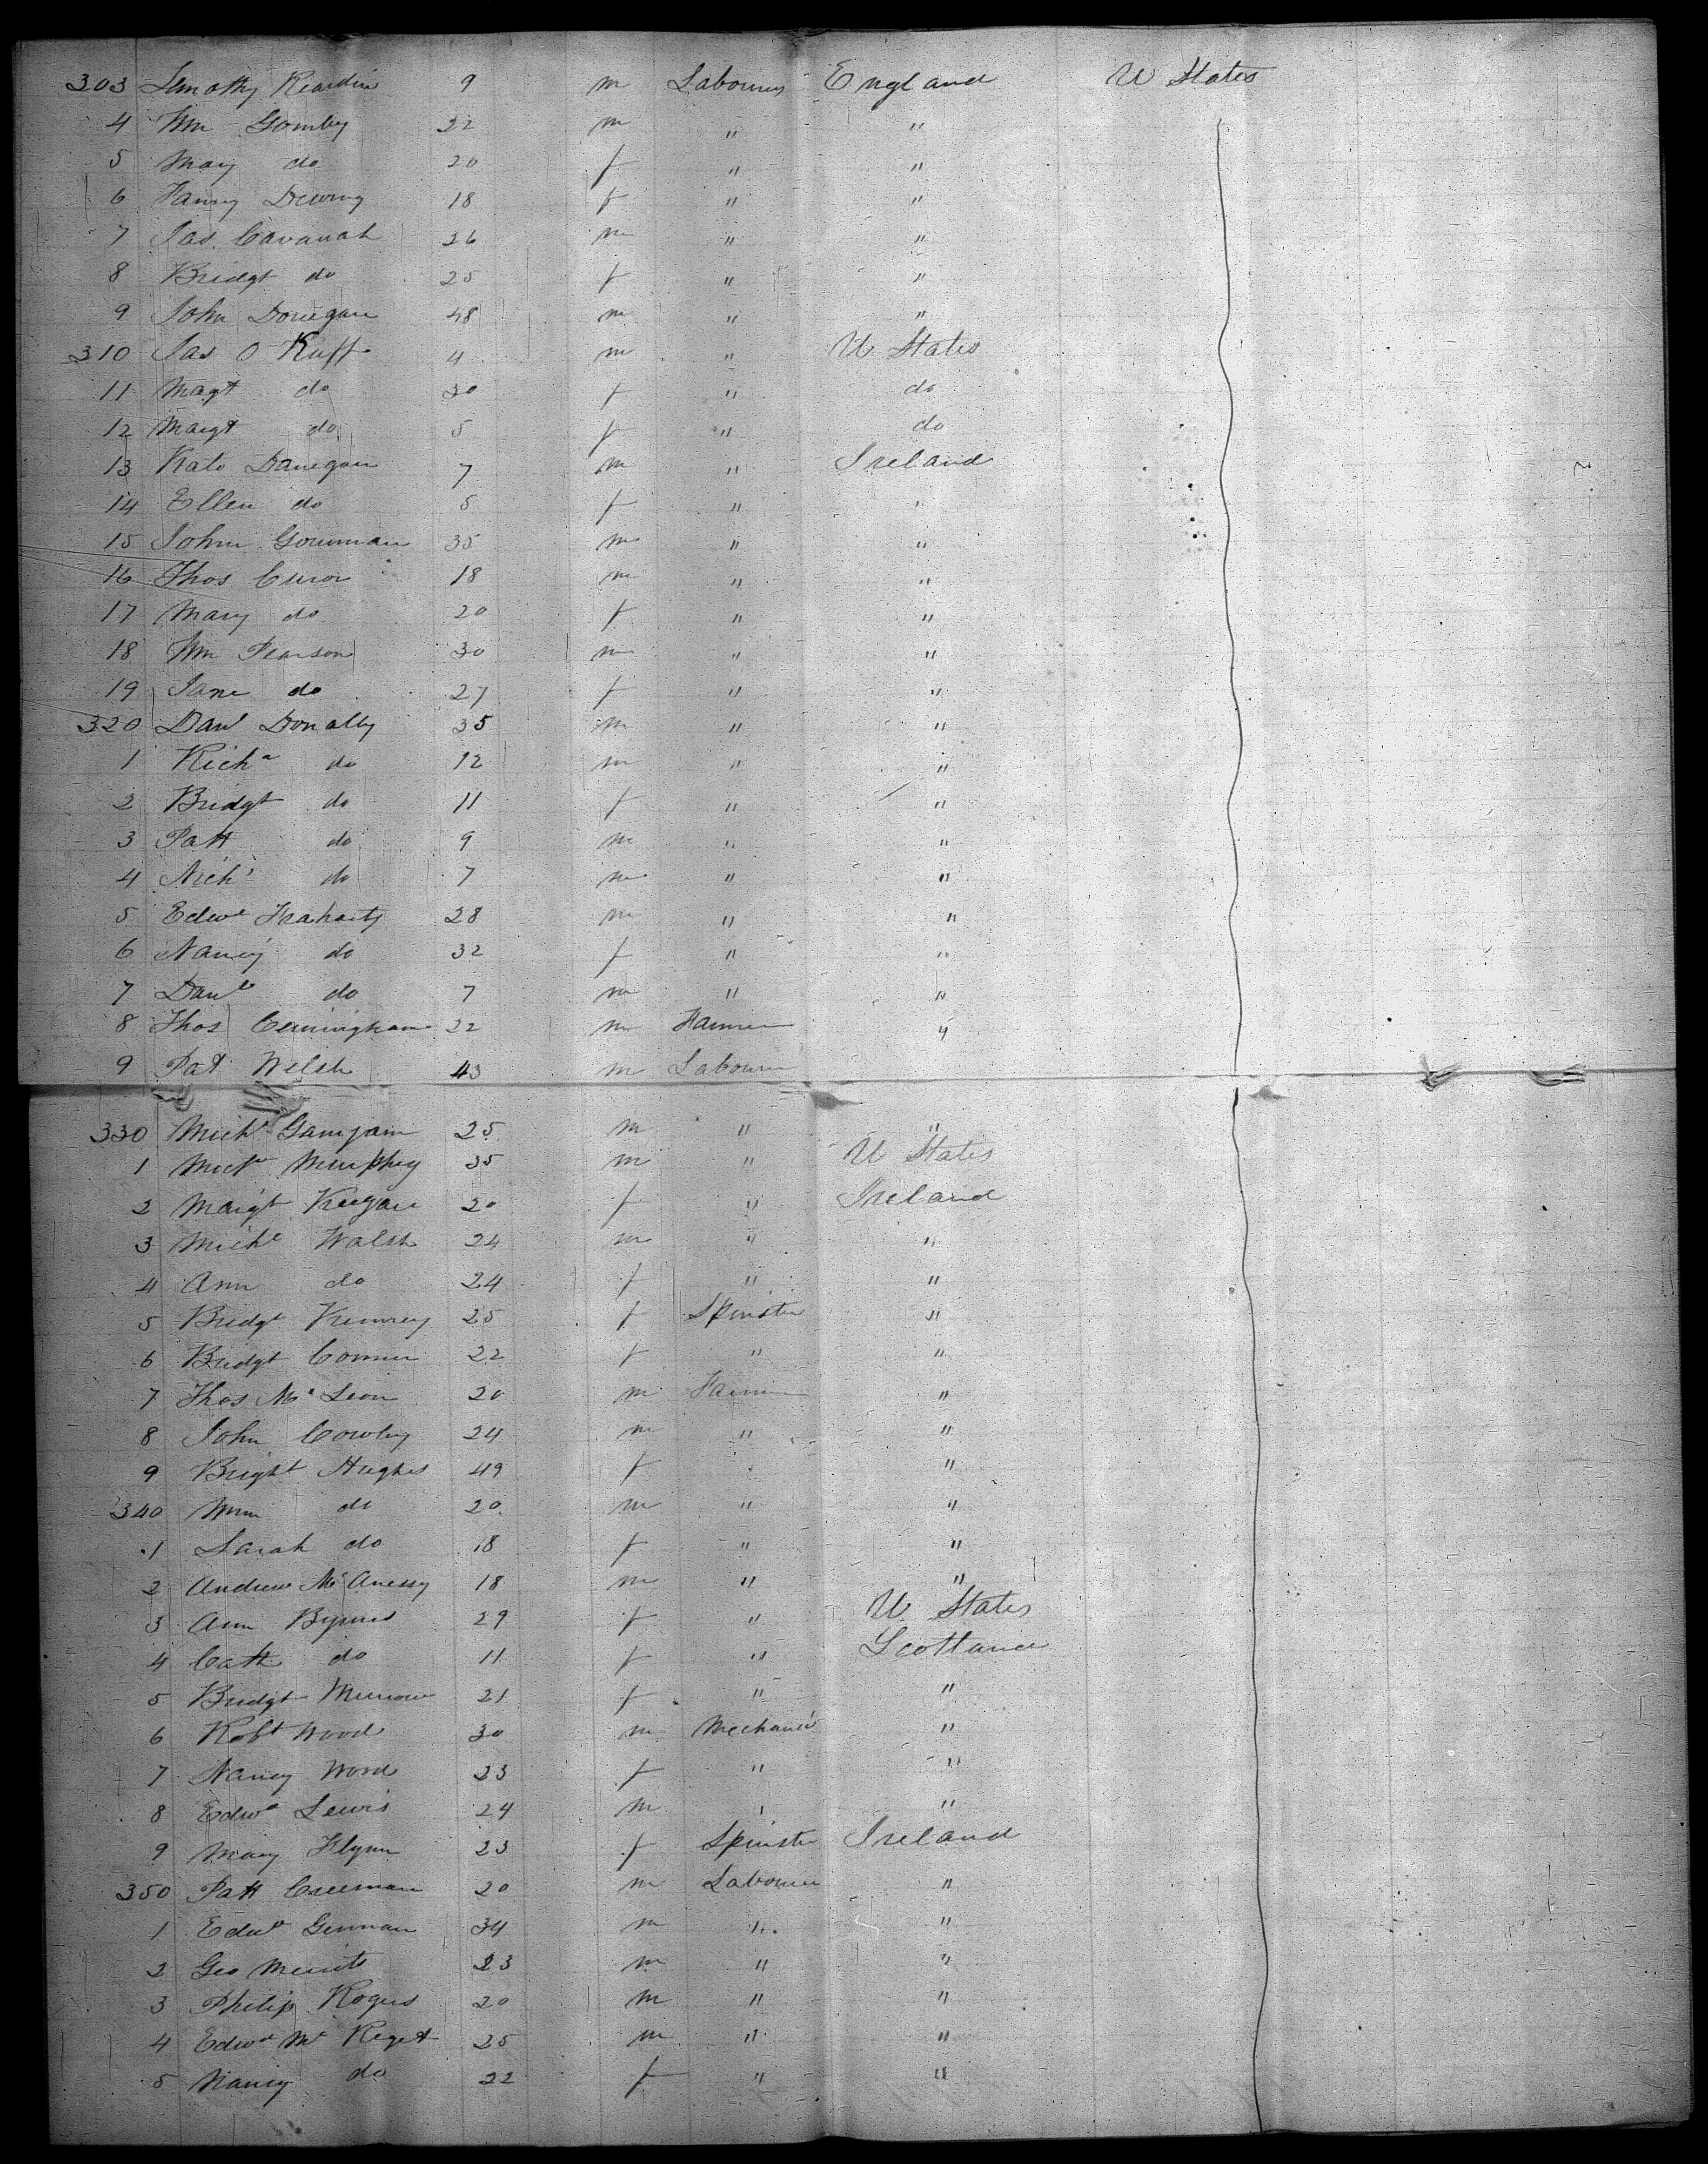 303 Timothy Reardin 9 m Labourer England U States
4 Wm Gomby 22 m " "
5 Mary do 20 f " "
6 Fanny Dewing 18 f " "
7 Jas. Cavanah 26 m " "
8 Bridgt do 25 f " "
9 John Donegan 48 m " "
310 Jas O Kuff 4 m " U States
11 Magt do 30 f " do
12 Margt do 5 f " do
13 Kate Danegan 7 m " Ireland
14 Ellen do 5 f " "
15 John Gounman 35 m " "
16 Thos Curon 18 m " "
17 Mary do 20 f " "
18 Wm Pearson 30 m " "
19 Jane do 27 f " "
320 Danl Donally 35 m " "
1 Richd do 12 m " "
2 Bridgt do 11 f " "
3 Patt do 9 m " "
4 Nichs do 7 m " "
5 Edwd Fraharty 28 m " "
6 Nancy do 32 f " "
7 Danl do 7 m " "
8 Thos Cunningham 22 m Farmer "
9 Pat Welsh 43 m Labourer
330 Michl Ganigam 25 m " "
1 Michl Murphey 35 m " U States
2 Margt Keegan 20 f " Ireland
3 Michl Walsh 24 m " "
4 Ann do 24 f " "
5 Bridgt Kemrey 25 f Spinster "
6 Bridgt Conner 22 f " "
7 Thos Mc Leon 20 m Farmer "
8 John Cowley 24 m " "
9 Bright Hughes 49 f "
340 Wm do 20 m " "
1 Sarah do 18 f " "
2 Andrew Mc Anessy 18 m " "
3 Ann Byrnes 29 f " U States
4 Cath do 11 f " Scotland
5 Bridgt Munrow 21 f " "
6 Robt Wood 30 m Mechanic "
7 Nancy Wood 23 f " "
8 Edwd Lewis 24 m " "
9 Mary Flynn 23 f Spinster Ireland
350 Patt Creeman 20 m Labourer "
1 Edwd Gennan 34 m " "
2 Geo Merrits 23 m " "
3 Philip Rogers 20 m " "
4 Edwd Mc Kegett 25 m " "
5 Nancy do 22 f " "